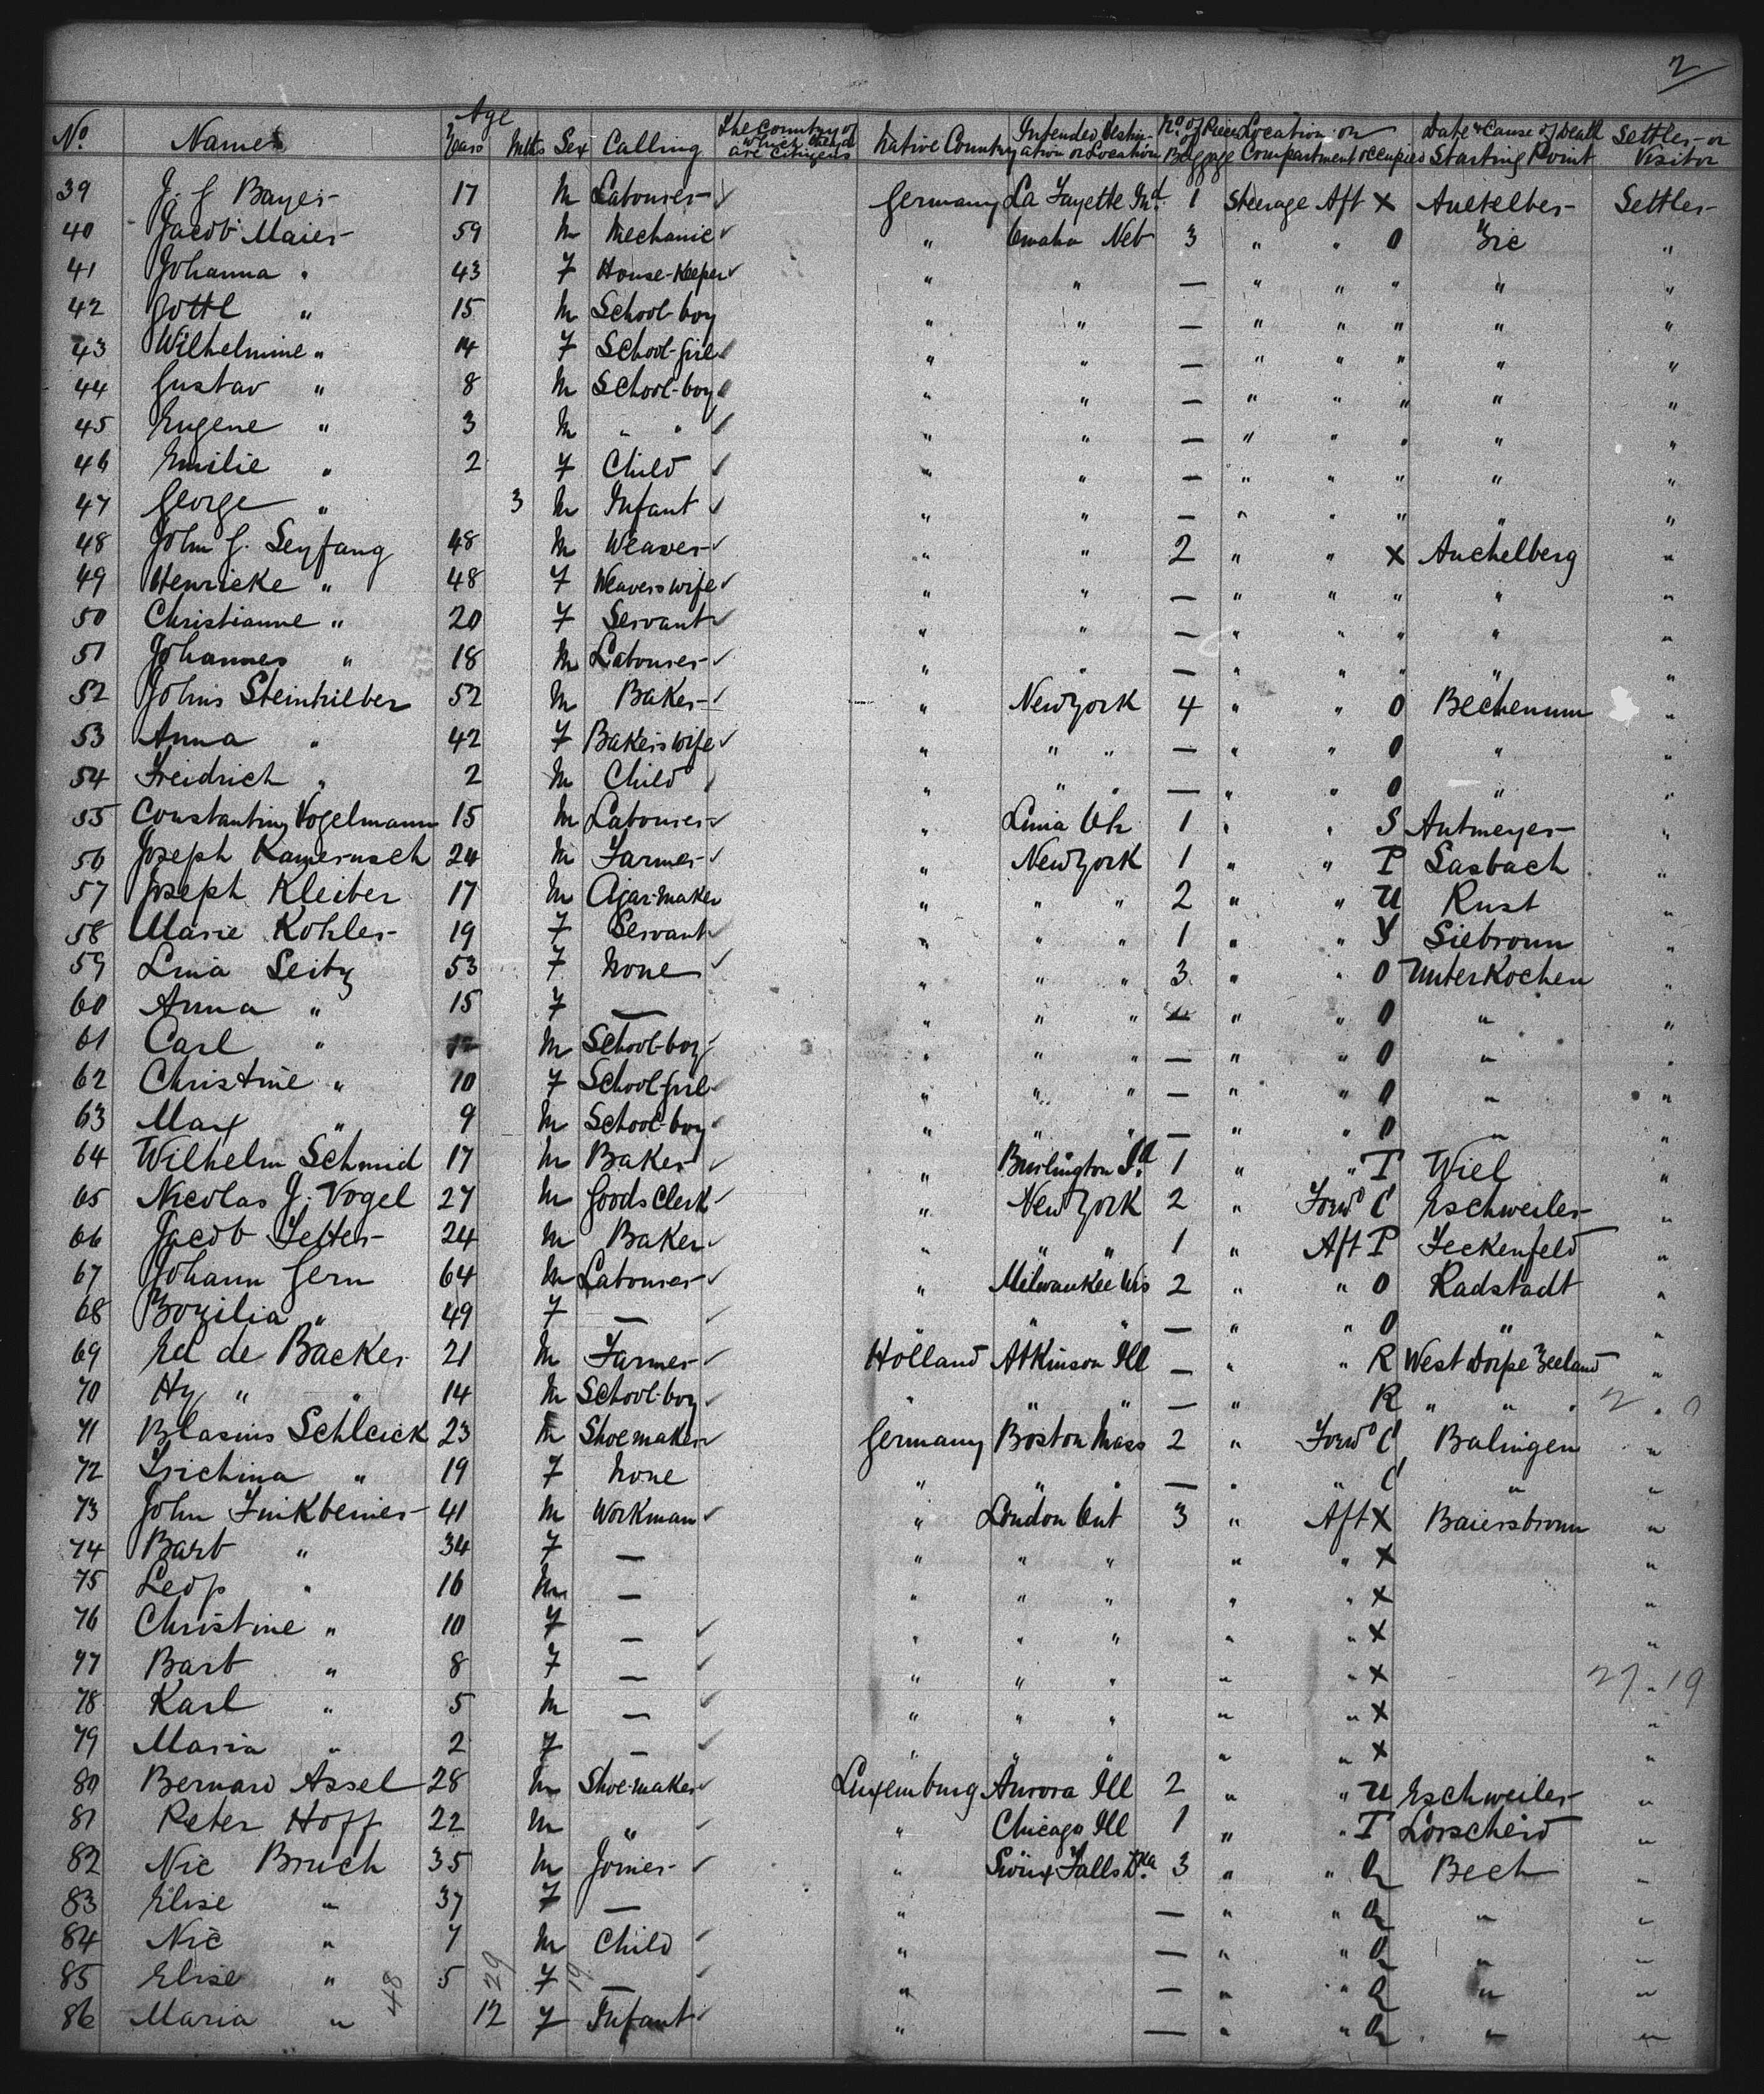 2
No. Names Age Years Mths Sex Calling The Country of which they are citizens Native Country Intended Destination or Location No. of Pieces of Baggage Location or Compartment occupied Date & Cause of Death Starting Point Settler or Visitor
39 J. G Bayer 17 M Labourer ✓ Germany La Fayette Ind. 1 Steerage Aft X Settler
40 Jacob Maier 59 M Mechanic ✓ " Omaha Neb 3 " " O "
41 Johanna " 43 F House-Keeper ✓ " " — " " " " "
42 Gottl " 15 M School-boy " " — " " " " "
43 Wilhelmine " 14 F School-Girl ✓ " " — " " " " "
44 Gustav " 8 M School-boy ✓ " " — " " " " "
45 Eugene " 3 M " " ✓ " " — " " " " "
46 Emilie " 2 F Child ✓ " " — " " " " "
47 George " 3 M Infant ✓ " " — " " " " "
48 John G. Seyfang 48 M Weaver ✓ " " 2 " " X Auchelberg "
49 Henrieke " 48 F Weavers wife ✓ " " — " " " " "
50 Christianne " 20 F Servant ✓ " " — " " " " "
51 Johannes " 18 M Labourer ✓ " " — " " " " "
52 Johns Steinhilber 52 M Baker ✓ " New York 4 " " O "
53 Anna " 42 F Bakers wife ✓ " " " — " " O " "
54 Freidrich " 2 M Child ✓ " " " — " " O " "
55 Constantin Vogelmann 15 M Labourer ✓ " Lima Oh 1 " " S Autmeyer "
56 Joseph 24 M Farmer ✓ " New York 1 " " P Sasbach "
57 Joseph Kleiber 17 M Cigar-maker " " " 2 " " U Rust "
58 Marie Kohler 19 F Servant ✓ " " " 1 " " Y Siebronn "
59 Lina Seitz 53 F None ✓ " " " 3 " " O Unterkochen "
60 Anna " 15 F — " " " — " " O " "
61 Carl " M School-boy ✓ " " " — " " O " "
62 Christine " 10 F School-Girl ✓ " " " — " " O " "
63 Max " 9 M School-boy ✓ " " " — " " O " "
64 Wilhelm Schmid 17 M Baker ✓ " Burlington 1 " " T Wiel "
65 Nicolas J. Vogel 27 M Goods Clerk ✓ " New York 2 " Forwd C Eschweiler "
66 Jacob 24 M Baker ✓ " " " 1 " Aft P Jeckenfeld "
67 Johann Gern 64 M Labourer ✓ " Milwaukee Wis 2 " " O Radstadt "
68 Bozilia " 49 F — ✓ " " " — " " O " "
69 Ed de Backer 21 M Farmer ✓ Holland Atkinson Ill — " " R West Dorpe Zeeland "
70 Hy " " 14 M School-boy ✓ " " " — " R " " " 2 " 0
71 Blasius Schleick 23 M Shoemaker ✓ Germany Boston Mass 2 " Forwd C Balingen "
72 " 19 F None " " " — " " C " "
73 John Finkbeiner 41 M Workman ✓ " London Ont 3 " Aft X Baiersbronn "
74 Barb " 34 F — " " " " " X "
75 Leop " 16 M — " " " " " X "
76 Christine " 10 F — ✓ " " " " " X "
77 Barb " 8 F — ✓ " " " " " X 27 " 19
78 Karl " 5 M — ✓ " " " " " X "
79 Maria " 2 F — ✓ " " " " " X "
80 Bernard Assel 28 M Shoemaker ✓ Luxemburg Aurora Ill 2 " " U Eschweiler "
81 Peter Hoff 22 M " ✓ " Chicago Ill 1 " " T Lorscheid "
82 Nic Bruch 35 M Joiner ✓ " Sioux Falls Dka 3 " " Q Bech "
83 Elise " 37 F — " — " " Q " "
84 Nic " 7 M Child ✓ " — " " Q " "
85 Elise " 5 F — ✓ " — " " Q " "
86 Maria " 12 F Infant ✓ " — " " Q " "
48 29 19